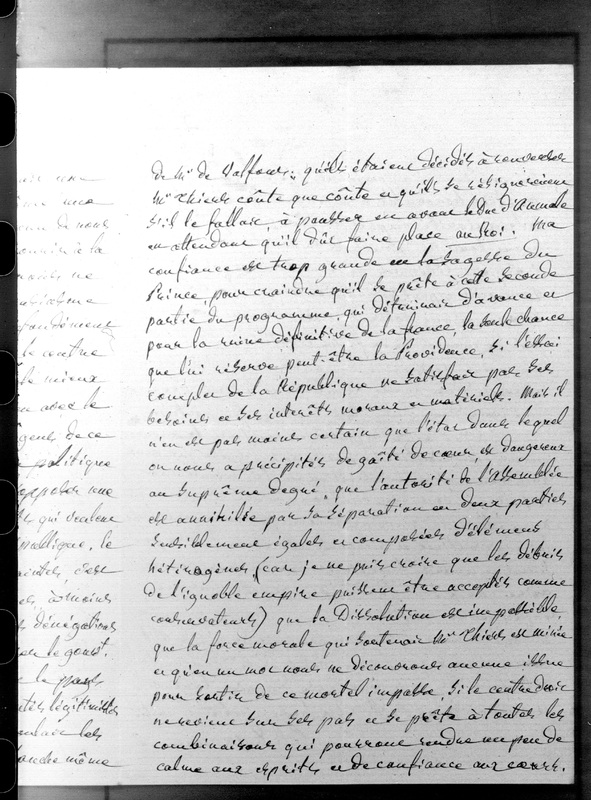 de Mr de Valfons; qu'ils étaient décidés à renverser
Mr Thiers coûte que coûte et qu'ils se résigneraient
s'il le fallait, à pousser en avant le Duc d'Aumale
en attendant qu'il dût faire place au Roi. Ma
confiance est trop grande en la sagesse du
Prince, pour craindre qu'il se prête à cette seconde
partie du programme, qui détruirait d'avance et
pour la ruine définitive de la france, la seule chance
que lui réserve peut-être la Providence, si l'essai
complet de la République ne satisfait pas ses
besoins et ses intérêts moraux et matériels. Mais il
n'en est pas moins certain que l'état dans lequel
on nous a précipités de gaîté de cœur est dangereux
au suprême degré, que l'autorité de l'assemblée
est annihilée par sa séparation en deux parties
sensiblement égales et composées d'éléments
hétérogènes, (car je ne puis croire que les débris
de l'ignoble empire puissent être acceptés comme
conservateurs) que la Dissolution est impossible,
que la force morale qui soutenait Mr Thiers est minée
et qu'en un mot nous ne découvrons aucune issue
pour sortir de ce mortel impasse, si le centre droit
ne revient sur ses pas et se prête à toutes les
combinaisons qui pourront rendre un peu de
calme aux esprits et de confiance aux cœurs.
ne
à la
ne
fondément
le centre
le mieux
avec le
de ce
politique
une
qui veulent
République, le
c'est
à moins
dénégations
le pays
légitimistes
les
même